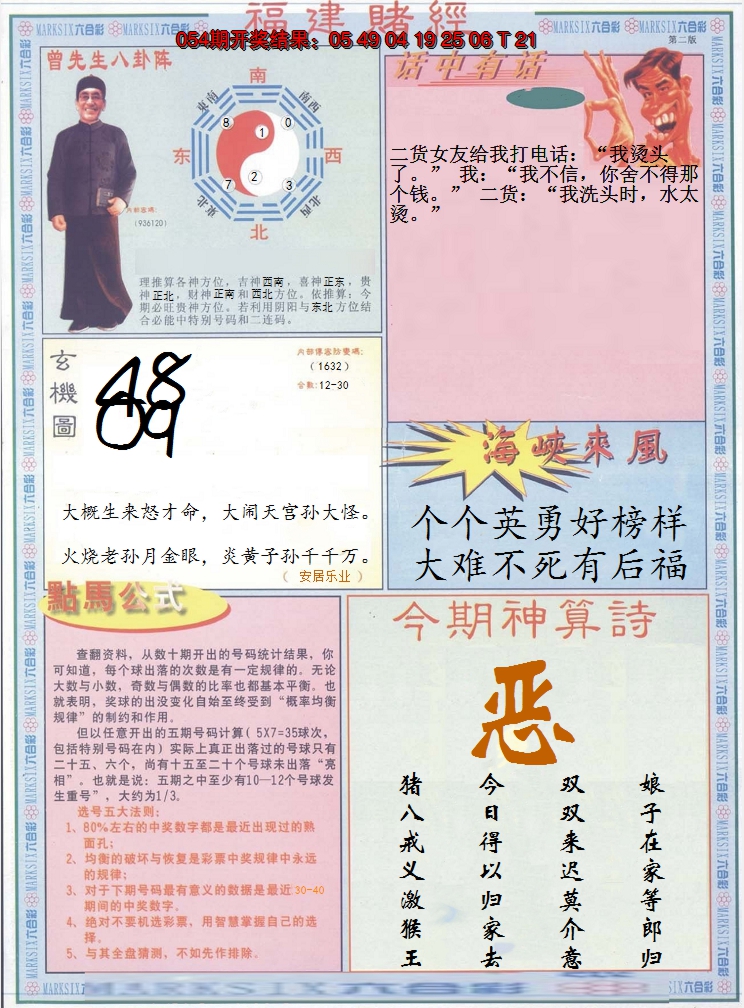 福建賭經
MARKSIX六合彩 MARKSIX六合彩 MARKSIX六合彩 MARKSIX六合彩
054期开奖结果: 05 49 04 19 25 06 T 21
第二版
曾先生八卦阵
南
东南
南西
8
1
0
东
西
7
2
3
東北
北西
北
内部密碼:
(936120)
理推算各神方位，吉神西南，喜神正东，贵
神正北，财神正南和西北方位。依推算：今
期必旺贵神方位。若利用阴阳与东北方位结
合必能中特别号码和二连码。
话中有话
二货女友给我打电话：“我烫头
了。” 我：“我不信，你舍不得那
个钱。” 二货：“我洗头时，水太
烫。”
玄機圖
48
09
(1632)
合数:12-30
大概生来怒才命，大闹天宫孙大怪。
火烧老孙月金眼，炎黄子孙千千万。
（ 安居乐业 ）
海峽來風
个个英勇好榜样
大难不死有后福
點馬公式
查翻资料，从数十期开出的号码统计结果，你
可知道，每个球出落的次数是有一定规律的。无论
大数与小数，奇数与偶数的比率也都基本平衡。也
就表明，奖球的出没变化自始至终受到“概率均衡
规律”的制约和作用。
但以任意开出的五期号码计算( 5X7=35球次，
包括特别号码在内) 实际上真正出落过的号球只有
二十五、六个，尚有十五至二十个号球未出落“亮
相”。也就是说：五期之中至少有10—12个号球发
生重号”，大约为1/3。
选号五大法则：
1、80%左右的中奖数字都是最近出现过的熟
面孔；
2、均衡的破坏与恢复是彩票中奖规律中永远
的规律；
3、对于下期号码最有意义的数据是最近30-40
期间的中奖数字。
4、绝对不要机选彩票，用智慧掌握自己的选
择。
5、与其全盘猜测，不如先作排除。
今期神算詩
恶
娘子在家等郎归
双双来迟莫介意
今日得以归家去
猪八戒义激猴王
MARKSIX六合彩